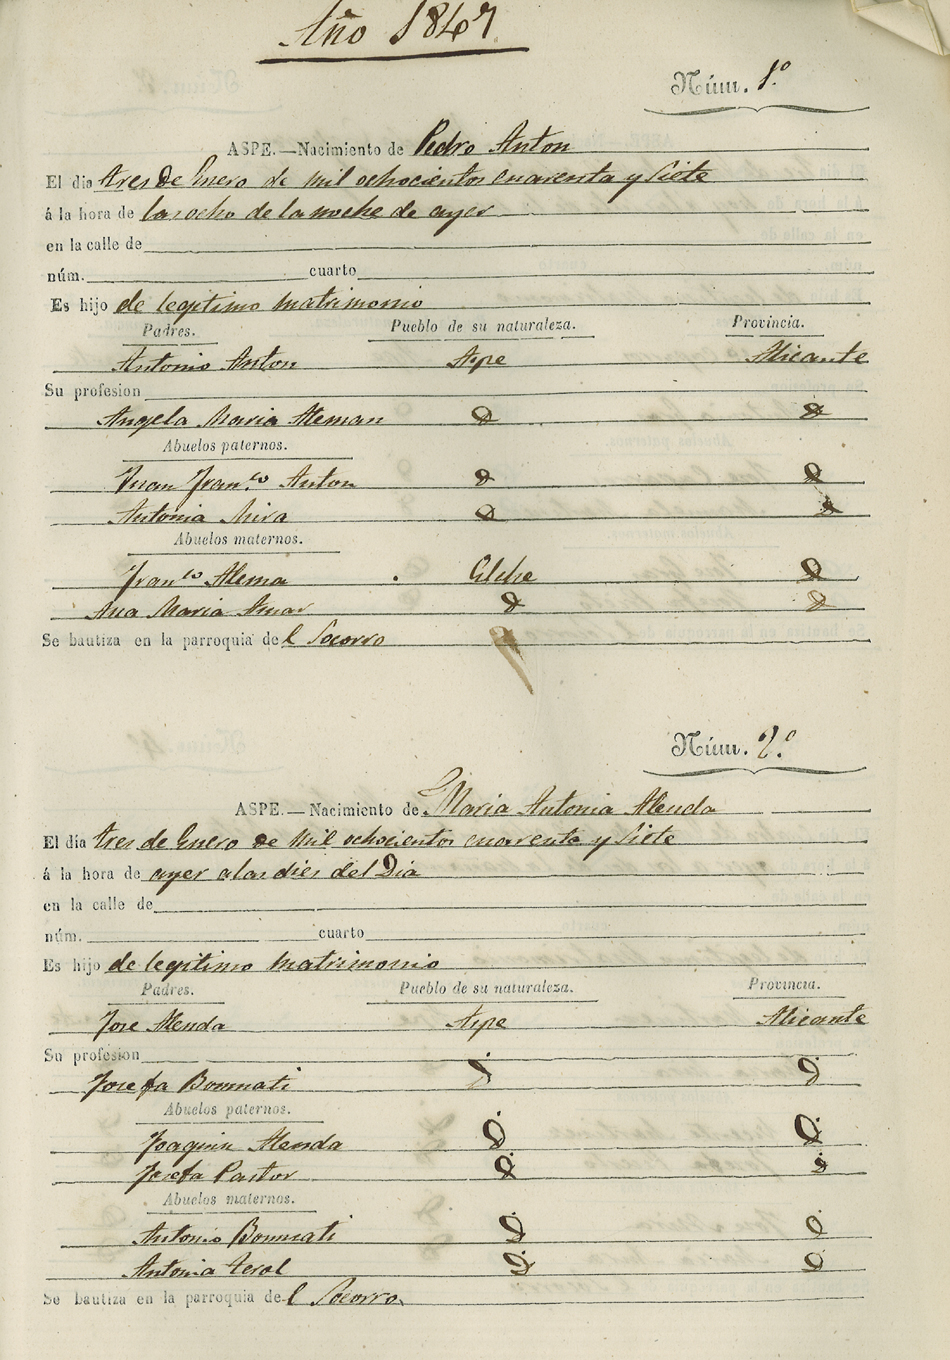 Año 1847
Núm. 1º
ASPE.—Nacimiento de Pedro Anton
El dia tres de Enero de mil ochocientos cuarenta y siete
á la hora de las ocho de la noche de ayer
en la calle de
núm. cuarto
Es hijo de legitimo matrimonio
Padres. Pueblo de su naturaleza. Provincia.
Antonio Anton Aspe Alicante
Su profesion
Angela Maria Aleman D D
Abuelos paternos.
Juan Franco Anton D D
Antonia Mira D D
Abuelos maternos.
Franco Alema Elche D
Ana Maria D D
Se bautiza en la parroquia de l Socorro
Núm. 2º
ASPE.—Nacimiento de Maria Antonia Alenda
El dia tres de Enero de mil ochocientos cuarenta y siete
á la hora de ayer a las dies del Dia
en la calle de
núm. cuarto
Es hijo de legitimo matrimonio
Padres. Pueblo de su naturaleza. Provincia.
Jose Alenda Aspe Alicante
Su profesion
Josefa Bonmati D D
Abuelos paternos.
Joaquin Alenda D D
Josefa Pastor D D
Abuelos maternos.
Antonio Bonmati D D
Antonia Terol D D
Se bautiza en la parroquia de l Socorro